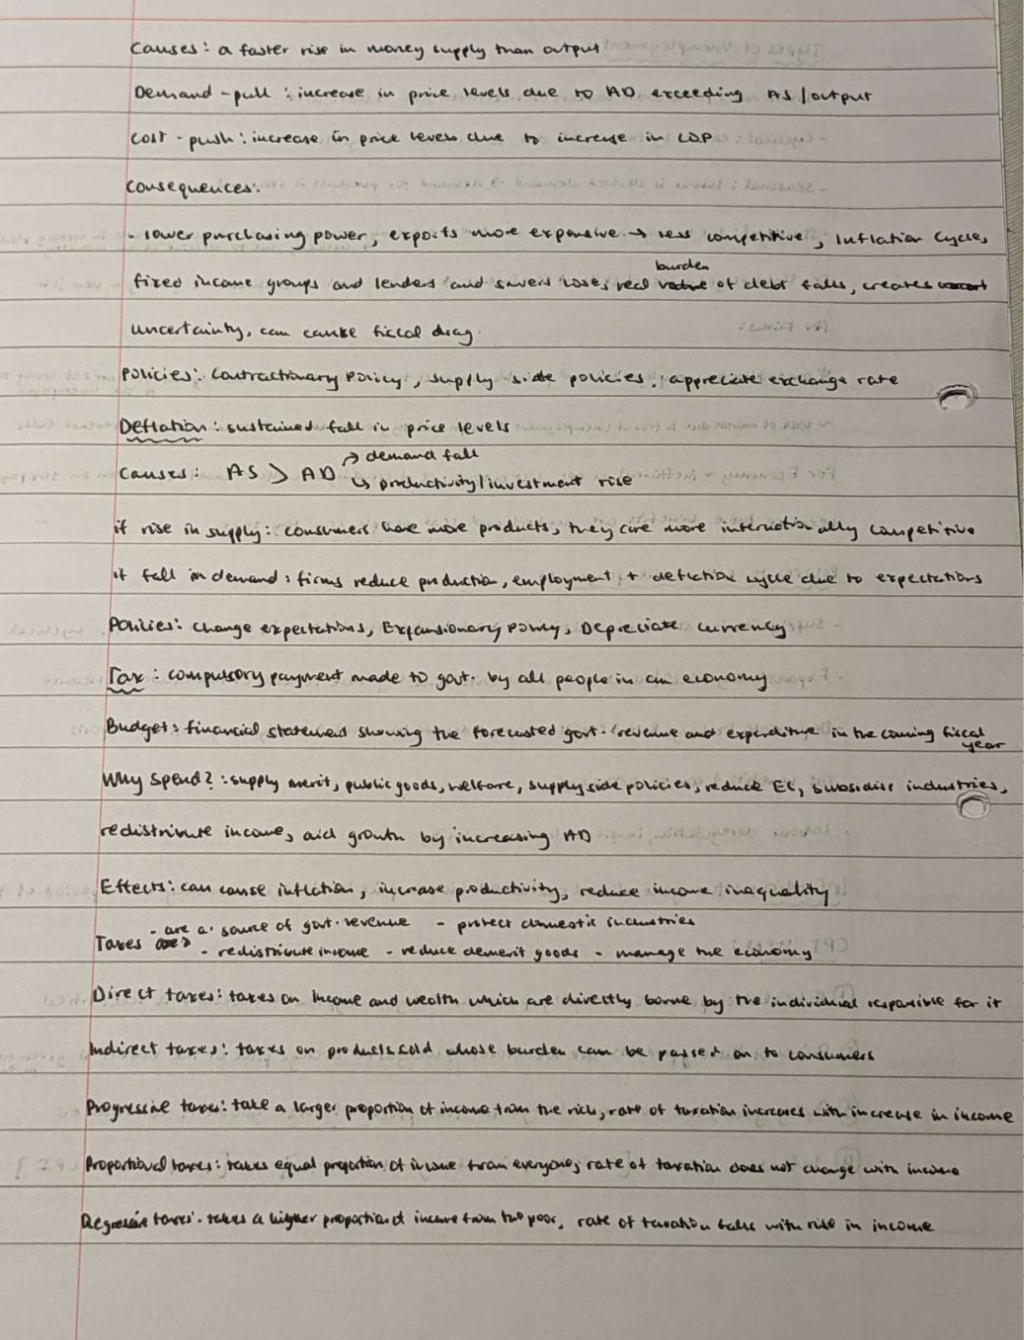 Causes: a faster rise in money supply than output
Demand-pull: increase in price levels due to AD exceeding AS/output
Cost-push: increase in price levels due to increase in COP
Consequences:
- lower purchasing power, exports more expensive → less competitive, Inflation cycle,
burden
fixed income groups and lenders and savers lose, real value of debt falls, creates
uncertainty, can cause fiscal drag.
Policies: Contractionary Policy, supply side policies, appreciate exchange rate
Deflation: sustained fall in price levels
Causes: AS > AD → demand fall
↳ productivity/investment rise
if rise in supply: consumers have more products, they are more internationally competitive
if fall in demand: firms reduce production, employment + deflation cycle due to expectations
Policies: change expectations, Expansionary Policy, Depreciate currency
Tax: compulsory payment made to govt. by all people in an economy
Budget: financial statement showing the forecasted govt. revenue and expenditure in the coming fiscal
year
Why spend?: supply merit, public goods, welfare, supply side policies, reduce EC, subsidise industries,
redistribute income, aid growth by increasing AD
Effects: can cause inflation, increase productivity, reduce income inequality
- are a source of govt. revenue - protect domestic industries
Taxes - redistribute income - reduce demerit goods - manage the economy
Direct taxes: taxes on income and wealth which are directly borne by the individual responsible for it
Indirect taxes: taxes on products sold whose burden can be passed on to consumers
Progressive taxes: take a larger proportion of income from the rich, rate of taxation increases with increase in income
Proportional taxes: takes equal proportion of income from everyone, rate of taxation does not change with income
Regressive taxes: takes a higher proportion of income from the poor, rate of taxation falls with rise in income